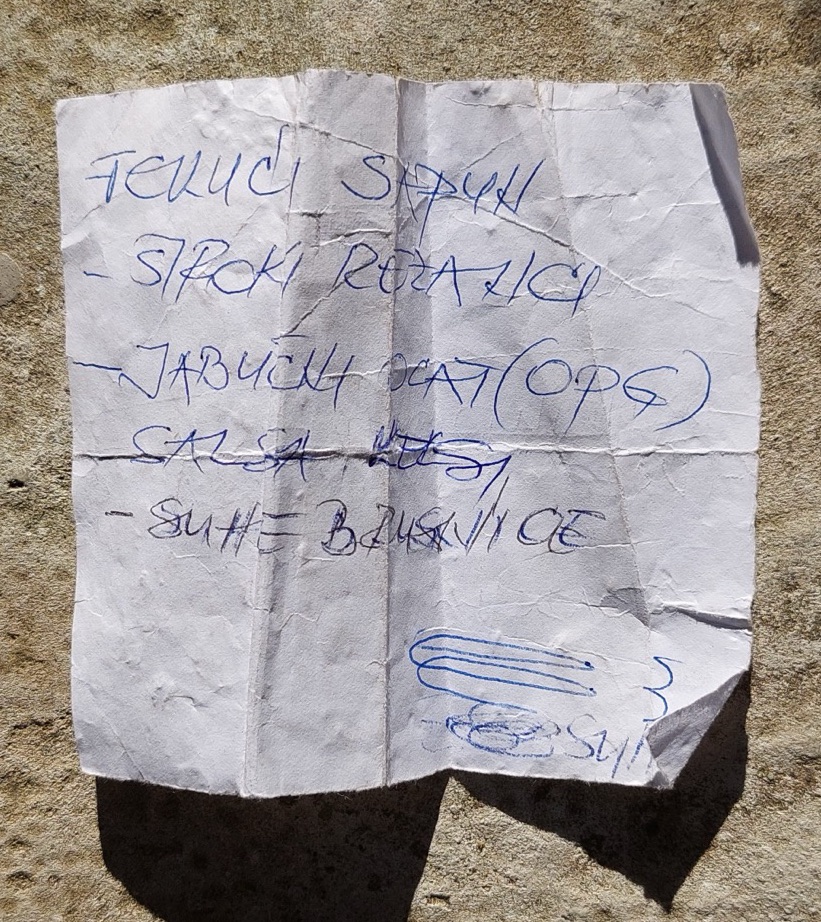 TEKUĆI SAPUN
- ŠIROKI REZANCI
- JABUČNI OCAT (OPG)
SALSA
- SUHE BRUSNICE